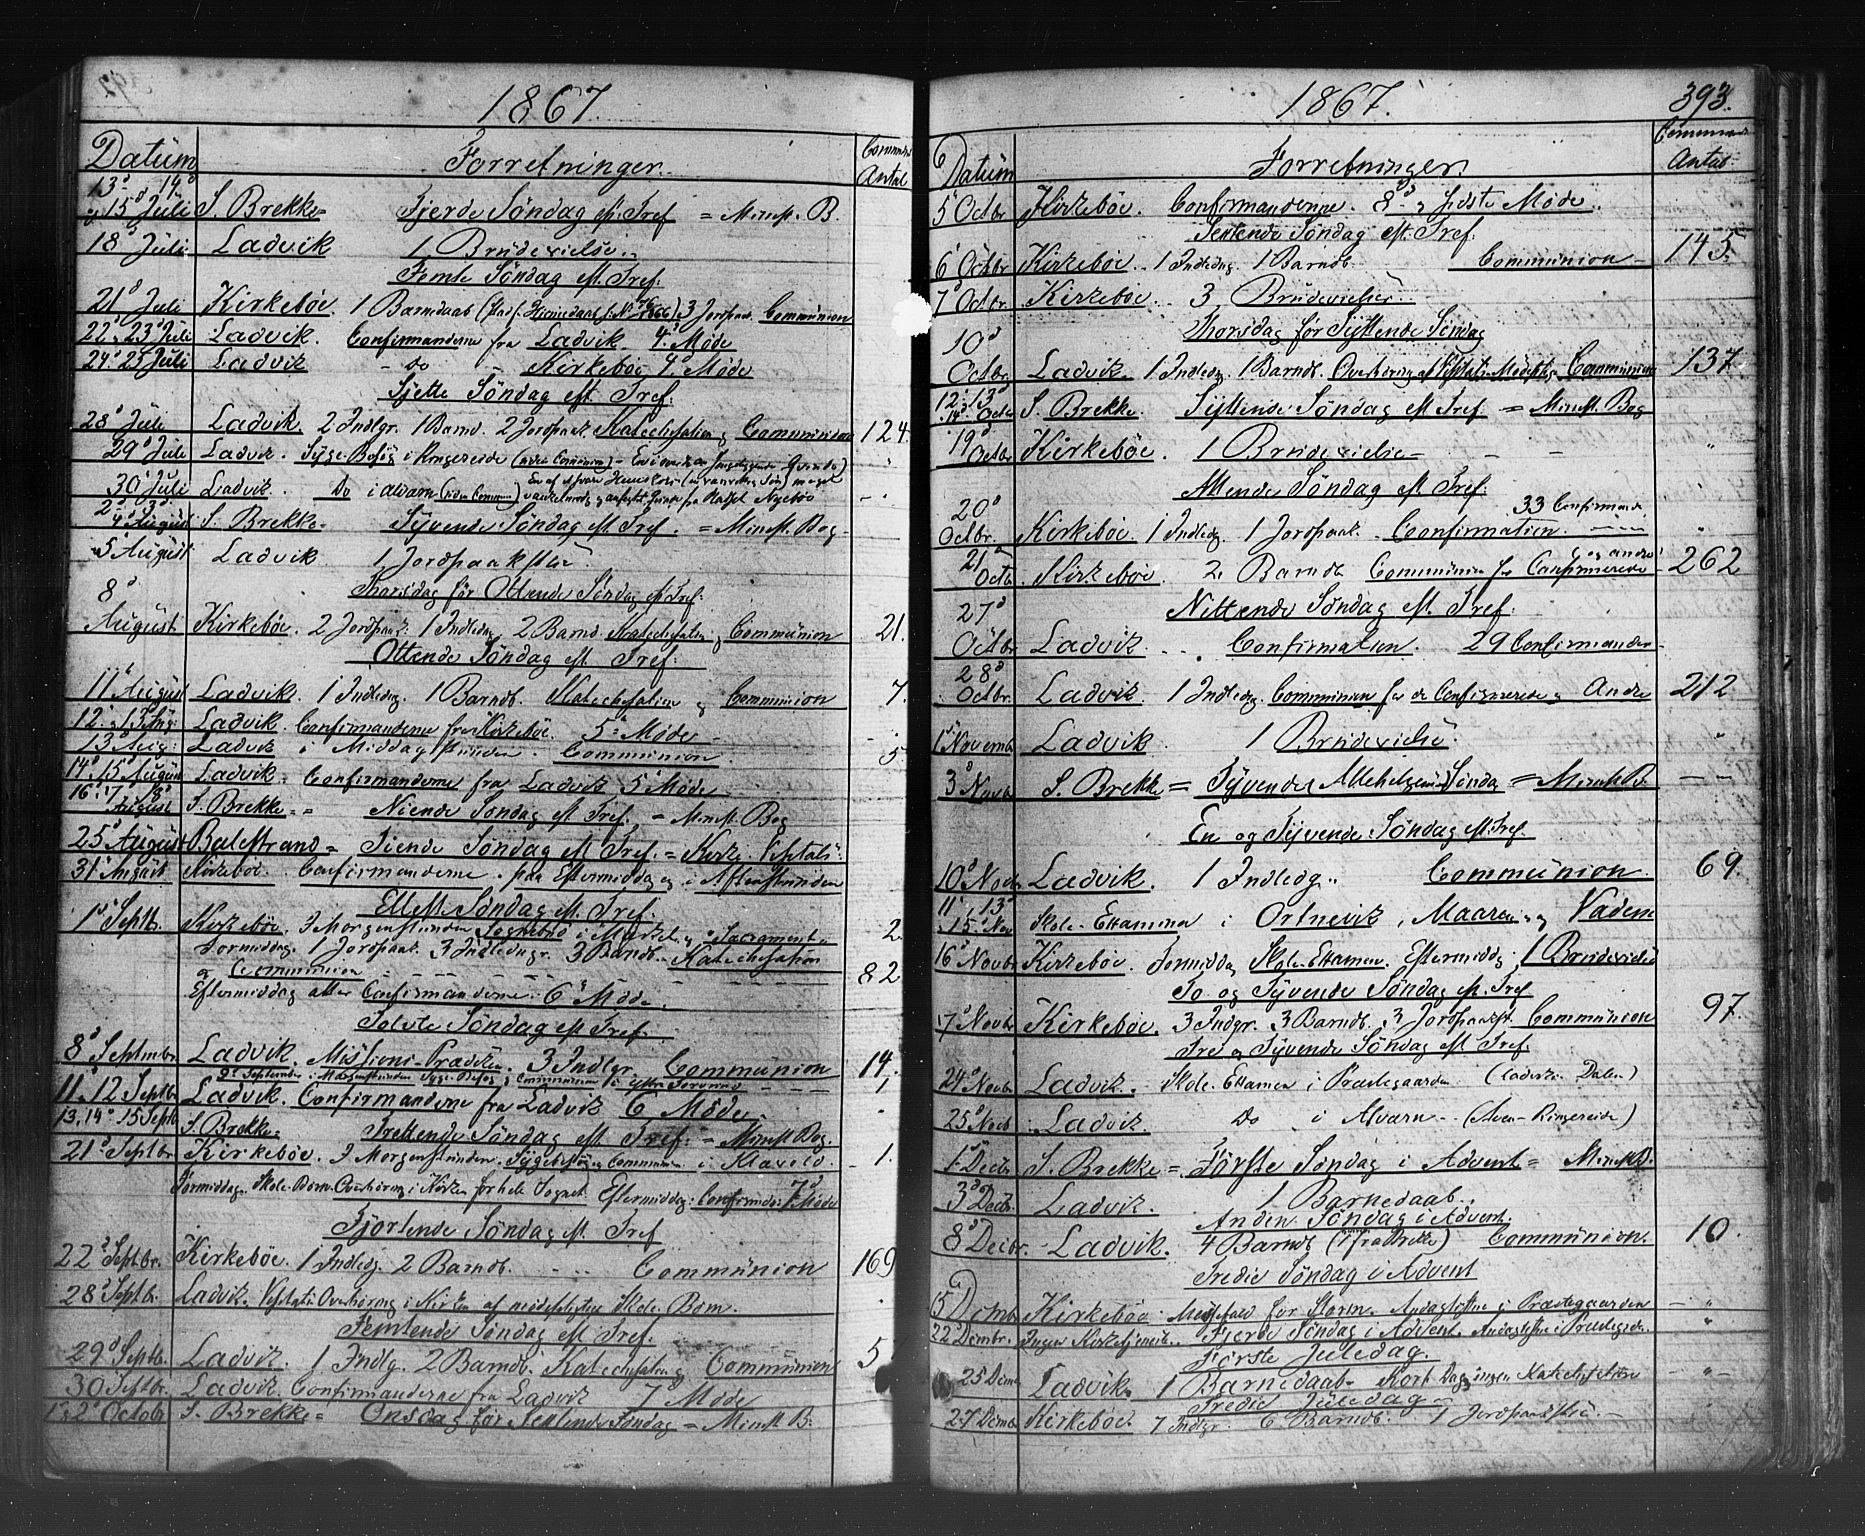 1867.
Datum Forretninger. Commun: Antal
13d 14d
og 15d Juli S. Brekke= Fjerde Søndag eft. Tref = Minist. B.
18d Juli Ladvik 1 Brudevielse.
Femte Søndag eft. Tref:
21d Juli Kirkebøe 1 Barnedaab 3 Jordpaak. Communion
22d, 23d Juli Ladvik. Confirmanderne fra Ladvik 4d Møde
24d 25 Juli Ladvik - do - Kirkebøe 4d Møde
Sjette Søndag eft. Tref:
28d Juli Ladvik. 2 Indlgr. 1 Barnd. 2 Jordpaak. Katechisation og Communion 124.
29d Juli Ladvik. Syge-Besøg i Ringereide
30d Juli Ladvik. Do i Alværn
2d 3d
4d August S. Brekke= Syvende Søndag eft. Tref. = Minist. Bog
5d August Ladvik 1 Jordpaakastelse
8d Thorsdag før Ottende Søndag eft. Tref:
August Kirkebøe. 2 Jordpaak. 1 Indledg. 2 Barnd. Katechisation og Communion 21.
Ottende Søndag eft. Tref:
11d August Ladvik. 1 Indledg. 1 Barndb. Katechisation og Communion 7.
12d og 13d Aug: Ladvik. Confirmanderne fra Kirkebøe. 5d Møde
13d Aug: Ladvik i Middagsstunden. Communion. 5
14d 15d August Ladvik. Confirmanderne fra Ladvik 5d Møde
16d 17 18d
August S. Brekke = Niende Søndag eft Tref. = Minist. Bog
25d August Balestrand = Tiende Søndag eft Tref. = Kirke Visitats:
31d August Kirkebøe. Confirmanderne. paa Eftermiddag og i Aftenstunden
Ellefte Søndag eft. Tref.
1d Septb. Kirkebøe. I Morgenstunden Sognebud i Sacrament 2
Formiddag. 1 Jordpaak. 3 Indledngr. 3 Barndb. Katechisation
og Communion 82
Eftermiddag atter Confirmanderne. 6d Møde.
Tolvte Søndag eft Tref.
8d Septmbr. Ladvik. Missions-Prædiken. 3 Indlgr. Communion 14.
9d September i Morgenstunden Syge-Besøg og Communion i 1
11d, 12 Septbr Ladvik. Confirmanderne fra Ladvik 6 Møde.
13, 14d 15 Septb S. Brekke= Trettende Søndag eft. Tref: = Minist. Bog.
21d Septbr. Kirkebøe. I Morgenstunden Sygebesøg og Communion i 1.
Formiddag. Skole-Børn. Overhøring i Kirken for hele Sognet. Eftermiddag: Confirmder 7d Møde
Fjortende Søndag eft. Tref
22d Septbr. Kirkebøe. 1 Indledg. 2 Barndb. Communion 169
28d Septb. Ladvik. Visitats Overhøring i Kirken af mødepligtige Skole-Børn.
Femtende Søndag eft Tref.
29d Septb. Ladvik. 1 Indlg. 2 Barndb. Katechisation og Communion 5
30 Septbr. Ladvik. Confirmanderne fra Ladvik 7d Møde
1d 2d Octob S. Brekke= Onsdag før Sextende Søndag = Minist B.
1867. 393.
Datum Forretninger. Commun: Antal
5d Octbr. Kirkebøe. Confirmanderne. 8d og sidste Møde.
Sextende Søndag eft. Tref:
6d Octbr Kirkebøe. 1 Indledg. 1 Barndb. Communion 145.
7d Octbr. Kirkebøe. 3 Brudevielser.
10d Thorsdag før Syttende Søndag
Octbr. Ladvik 1 Indledg. 1 Barndb. Communion 137.
12d 13d
14d Octbr S. Brekke. Syttende Søndag eft Tref = Minist. Bog
19d
Octbr Kirkebøe. 1 Brudevielse
Attende Søndag eft Tref:
20d 33 Confirmande
Octbr. Kirkebøe 1 Indledg. 1 Jordpaak. Confirmation.
21d
Octb. Kirkebøe. 2 Barndb. Communion for Confirmerede og andre 262
27d Nittende Søndag eft. Tref:
Octbr Ladvik Confirmation. 29 Confirmander
28d
Octbr. Ladvik 1 Indledg. Communion for de Confirmerede og Andre 212
1d Novemb Ladvik 1 Brudevielse.
3d Novb S. Brekke = Tyvende Søndag = Minist B.
En og Tyvende Søndag eft. Tref.
10d Novbr Ladvik. 1 Indledg. Communion. 69.
11d, 13d
15d Nov Skole-Examina i Ortnevik, Maaren og Vadem
16d Novbr Kirkebøe. Formiddag Skole-Examen. Eftermiddag 1 Brudevielse
To og Tyvende Søndag eft. Tref.
17d Novbr. Kirkebøe. 3 Indgr. 3 Barndb. 3 Jordpaakst. Communion 97.
Tre og Tyvende Søndag eft Tref:
24d Novbr Ladvik. Skole-Examen i Præstegaarden
25d Novb Ladvik Do i Alværn
1d Decbr. S. Brekke = Første Søndag i Advent = Minist B.
3d Decbr. Ladvik. 1 Barnedaab.
Anden Søndag i Advent.
8d Decbr. Ladvik. 4 Barndb Communion. 10.
Tredie Søndag i Advent
15 Dcmbr Kirkebøe. Messefald for Storm. Andagtstime i Præstegaarden
22 Dcmbr. Ingen Kirketjeneste. Fjerde Søndag i Advent. Andagtstime i Præstegrd.
Første Juledag.
25 Dcmb. Ladvik. 1 Barnedaab. Kort Dag, ingen Katechisation
Tredie Juledag.
27 Dcmb Kirkebøe. 7 Indlgr. 6 Barndb. 1 Jordpaakstelse.